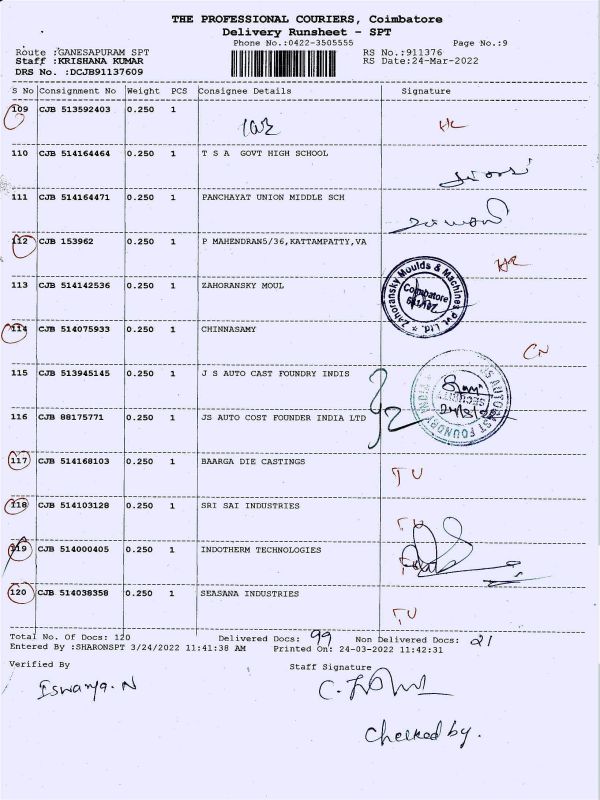 THE PROFESSIONAL COURIERS, Coimbatore
Delivery Runsheet - SPT
Phone No.:0422-3505555 Page No.:9
Route :GANESAPURAM SPT RS No.:911376
Staff :KRISHANA KUMAR RS Date:24-Mar-2022
DRS No. :DCJB91137609
S No Consignment No Weight PCS Consignee Details Signature
109 CJB 513592403 0.250 1
110 CJB 514164464 0.250 1 T S A GOVT HIGH SCHOOL
111 CJB 514164471 0.250 1 PANCHAYAT UNION MIDDLE SCH
112 CJB 153962 0.250 1 P MAHENDRAN5/36,KATTAMPATTY,VA
113 CJB 514142536 0.250 1 ZAHORANSKY MOUL
Zahoransky Moulds & Machines Pvt. Ltd.
Coimbatore
114 CJB 514075933 0.250 1 CHINNASAMY CN
115 CJB 513945145 0.250 1 J S AUTO CAST FOUNDRY INDIS
SECURITY
116 CJB 88175771 0.250 1 JS AUTO COST FOUNDER INDIA LTD
117 CJB 514168103 0.250 1 BAARGA DIE CASTINGS TU
118 CJB 514103128 0.250 1 SRI SAI INDUSTRIES TU
119 CJB 514000405 0.250 1 INDOTHERM TECHNOLOGIES
120 CJB 514038358 0.250 1 SEASANA INDUSTRIES TU
Total No. Of Docs: 120 Delivered Docs: 99 Non Delivered Docs: 21
Entered By :SHARONSPT 3/24/2022 11:41:38 AM Printed On: 24-03-2022 11:42:31
Verified By Staff Signature
Iswarya.N
Checked by.